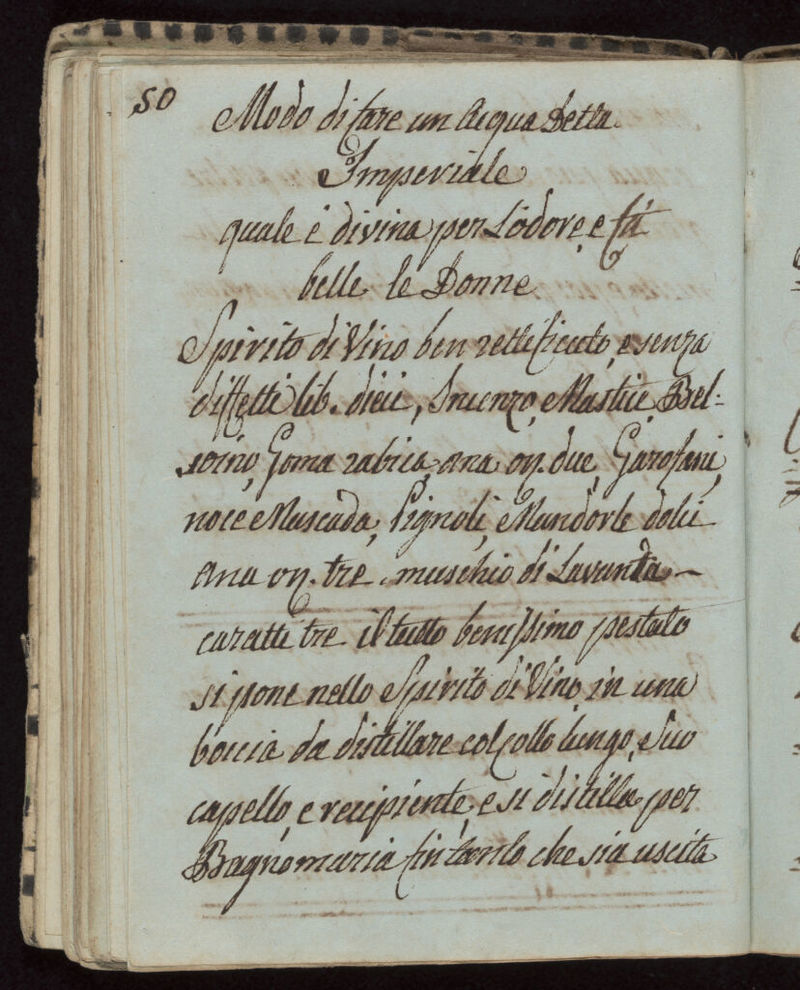 50
Modo di fare un Acqua Detta
Imperiale
quale è divina per L'odore, e fà
belle le Donne
Spirito di Vino ben rettificato, e senza
diffetti lib. dieci, Incenzo, Mastice Bel-
zoino, Goma rabica, ana on. due, Garofani,
noce Muscada, Pignoli, Mandorle dolci
ana on. tre. muschio di Lavanda
caratti tre il tutto benissimo pestato
si pone nello Spirito di Vino in una
boccia da distillare col collo lungo, Suo
capello, e recipiente, e si distilla per
Bagnomaria fin tanto che sia uscita